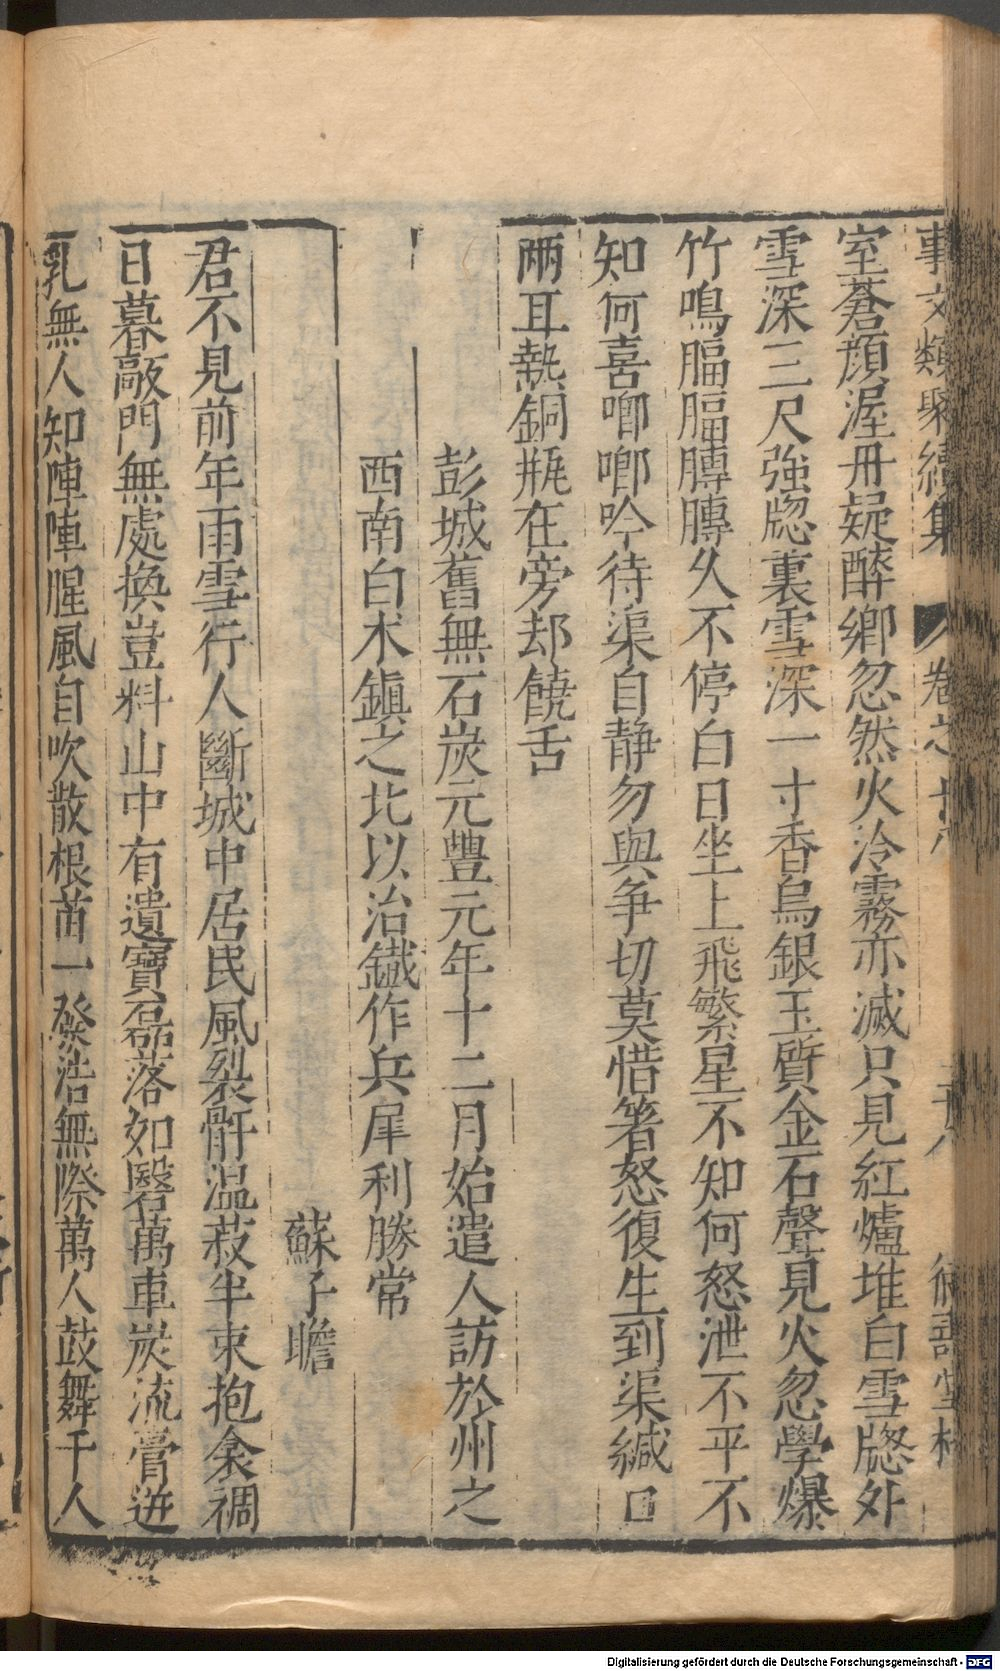 事文類聚續集 卷之十八
室蒼顔渥丹疑醉鄉忽然火冷霧亦滅只見紅爐堆白雪牎外
雪深三尺強牎裏雪深一寸香烏銀玉質金石聲見火忽學爆
竹鳴腷腷膊膊久不停白日坐上飛繁星不知何怒泄不平不
知何喜啷啷吟待渠自静勿與爭切莫惜箸怒復生到渠緘口
兩耳熱銅瓶在旁却饒舌
彭城舊無石炭元豐元年十二月始遣人訪於州之
西南白木鎮之北以冶鐵作兵犀利勝常
蘇子瞻
君不見前年雨雪行人斷城中居民風裂骭温菽半束抱衾裯
日暮敲門無處換豈料山中有遺寶磊落如毉萬車炭流膏迸
乳無人知陣陣腥風自吹散根苗一發浩無際萬人鼓舞千人
Digitalisierung gefördert durch die Deutsche Forschungsgemeinschaft - DFG